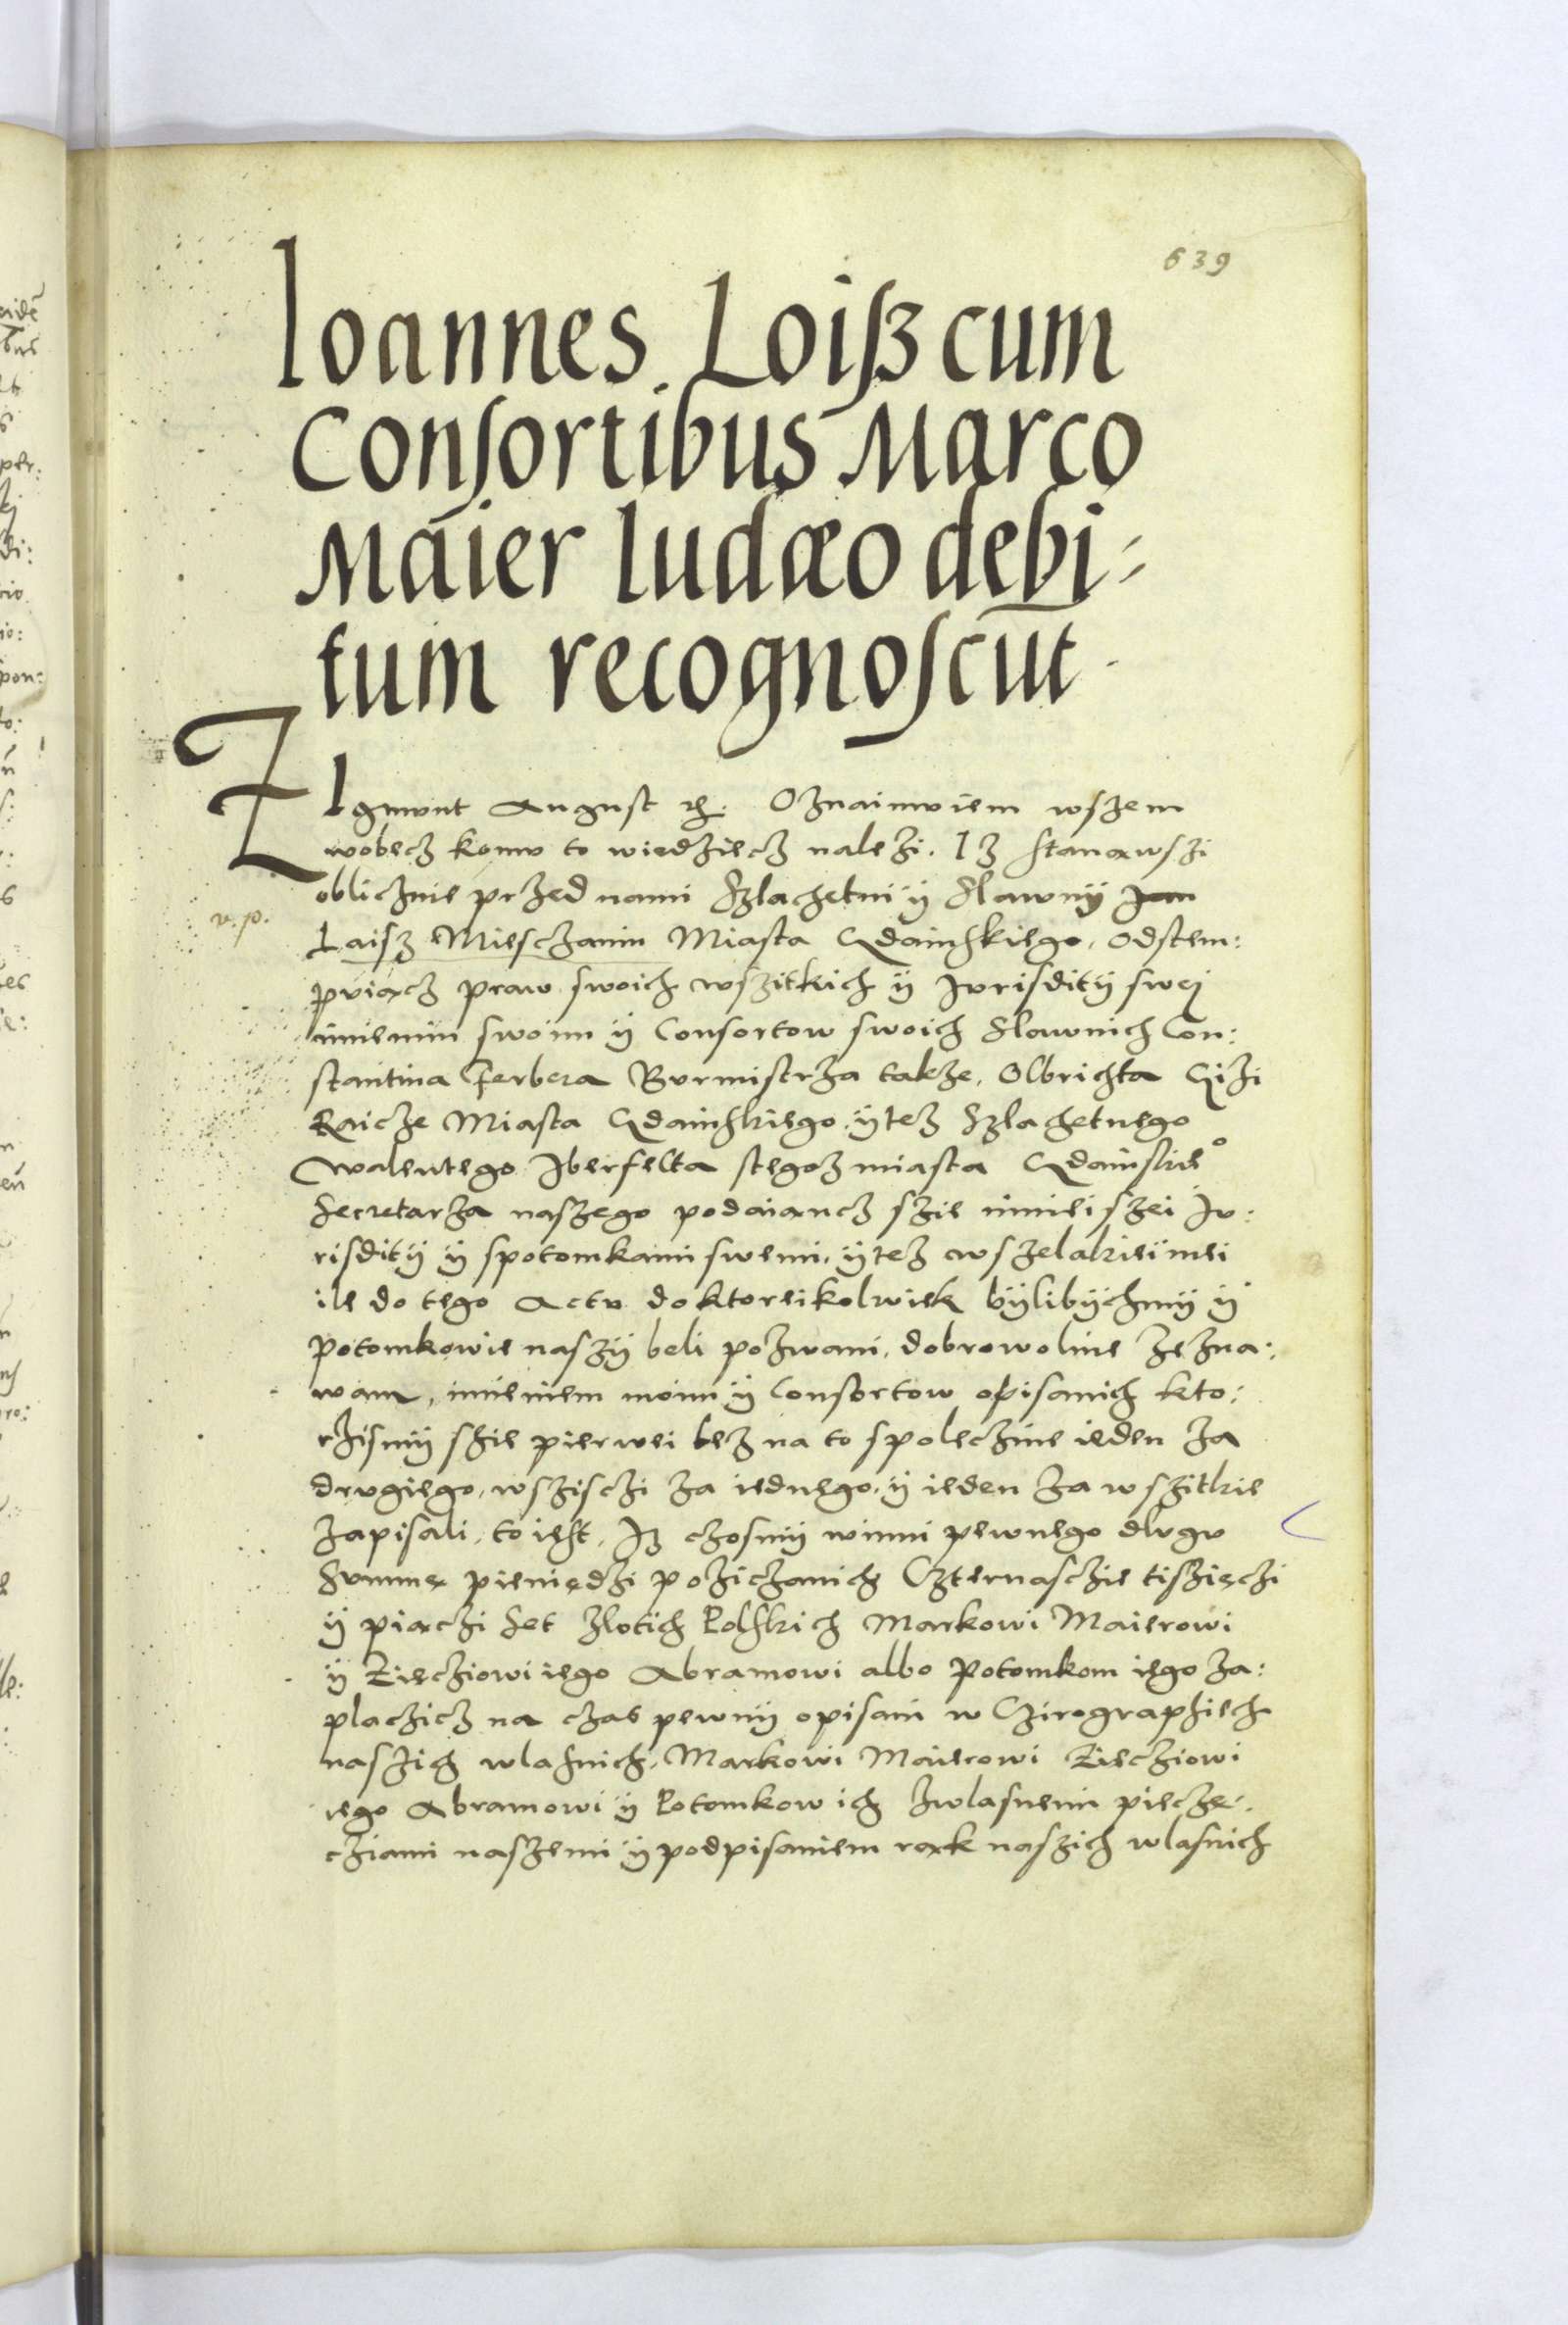 639
Ioannes Loisz cum
Consortibus Marco
Maier Iudæo debi-
tum recognoscūt
ZIgmunt August etc. Oznaimuiem wszem
wobecz komu to wiedziecz nalezi. Iz stanąwszi
oblicznie przed nami Szlachetni ÿ Slawnÿ Jan
v. p.
Laisz Miesczanin Miasta Gdainskiego, odstem:
puiącz praw swoich wszitkich ÿ Iurisditÿ swej
imienim swoim ÿ Consortow swoich Slawnich Con:
stantina Ferbera Burmistrza takze, Olbrichta Gizi
Raicze Miasta Gdainskiego, ÿ tez Szlachetnego
Walentego Iberfelta stegoz miasta Gdainskieº
Secretarza naszego podaiancz szie innei szei Iu:
risditÿ ÿ spotomkami swemi, ÿ tez wszelakiei inei
ile do tego Actu do ktoreikolwiek bÿlibÿchmÿ ÿ
Potomkowie naszÿ beli pozwani, dobrowolnie zezna:
wam, imieniem moim ÿ Consortow opisanich kto:
rzismÿ szie pierwei bez na to spolecznie ieden za
drugiego, wszisczi za iednego, ÿ ieden za wszitkie
zapisali, to iest, Iz czosmÿ winni pewnego dlugu
Summę pieniędzi pozicżanich Czternasczie tisziączi
ÿ piączi set zlotich Polskich Markowi Maierowi
ÿ Ziecziowi iego Abramowi albo Potomkom iego za:
placzicz na czas pewnÿ opisani w Czirographiech
naszich wlasnich, Markowi Maierowi Zieczwiowi
iego Abramowi ÿ Potomkow ich zwlasnemi piecze:
cziami naszemi ÿ podpisaniem rąk naszich wlasnich